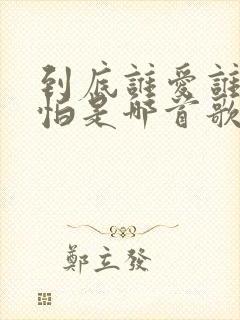 到底誰愛誰
怕是哪首歌
鄭立發